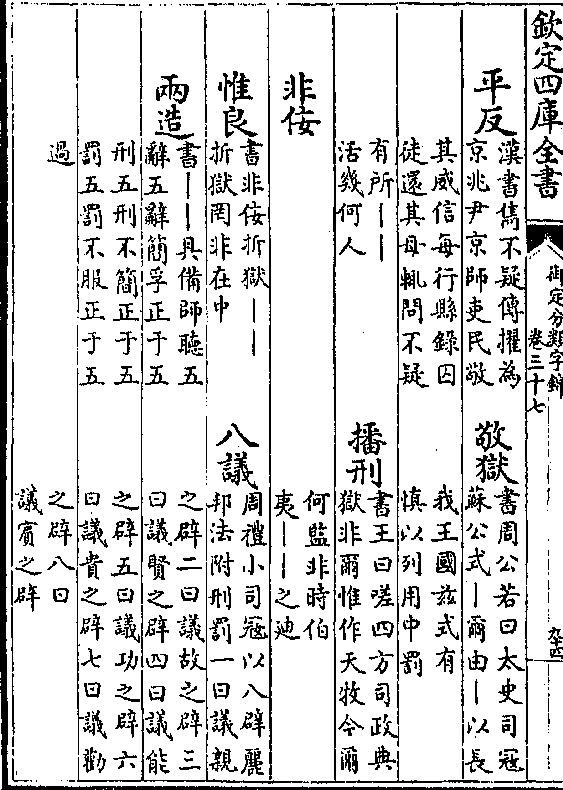 欽定四庫全書
御定分類字錦
卷三十七
九十四
平反
漢書雋不疑傳擢為
京兆尹京師吏民敬
其威信每行縣錄囚
徒還其母輒問不疑
有所丨丨
活幾何人
非佞
惟良
書非佞折獄丨丨
折獄罔非在中
兩造
書丨丨具備師聽五
辭五辭簡孚正于五
刑五刑不簡正于五
罰五罰不服正于五
過
敬獄
書周公若曰太史司寇
蘇公式丨爾由丨以長
我王國茲式有
慎以列用中罰
播刑
書王曰嗟四方司政典
獄非爾惟作天牧今爾
何監非時伯
夷丨丨之迪
八議
周禮小司寇以八辟麗
邦法附刑罰一曰議親
之辟二曰議故之辟三
曰議賢之辟四曰議能
之辟五曰議功之辟六
曰議貴之辟七曰議勤
之辟八曰
議賓之辟